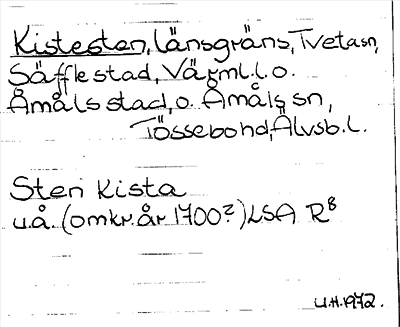 Kistesten, länsgräns, Tveta sn,
Säffle stad, Värml. l. o.
Åmåls stad, o. Åmåls sn,
Tössebo hd, Älvsb. l.
Sten Kista
u.å. (omkr. år 1700?) LSA R8
U.H. 1972.